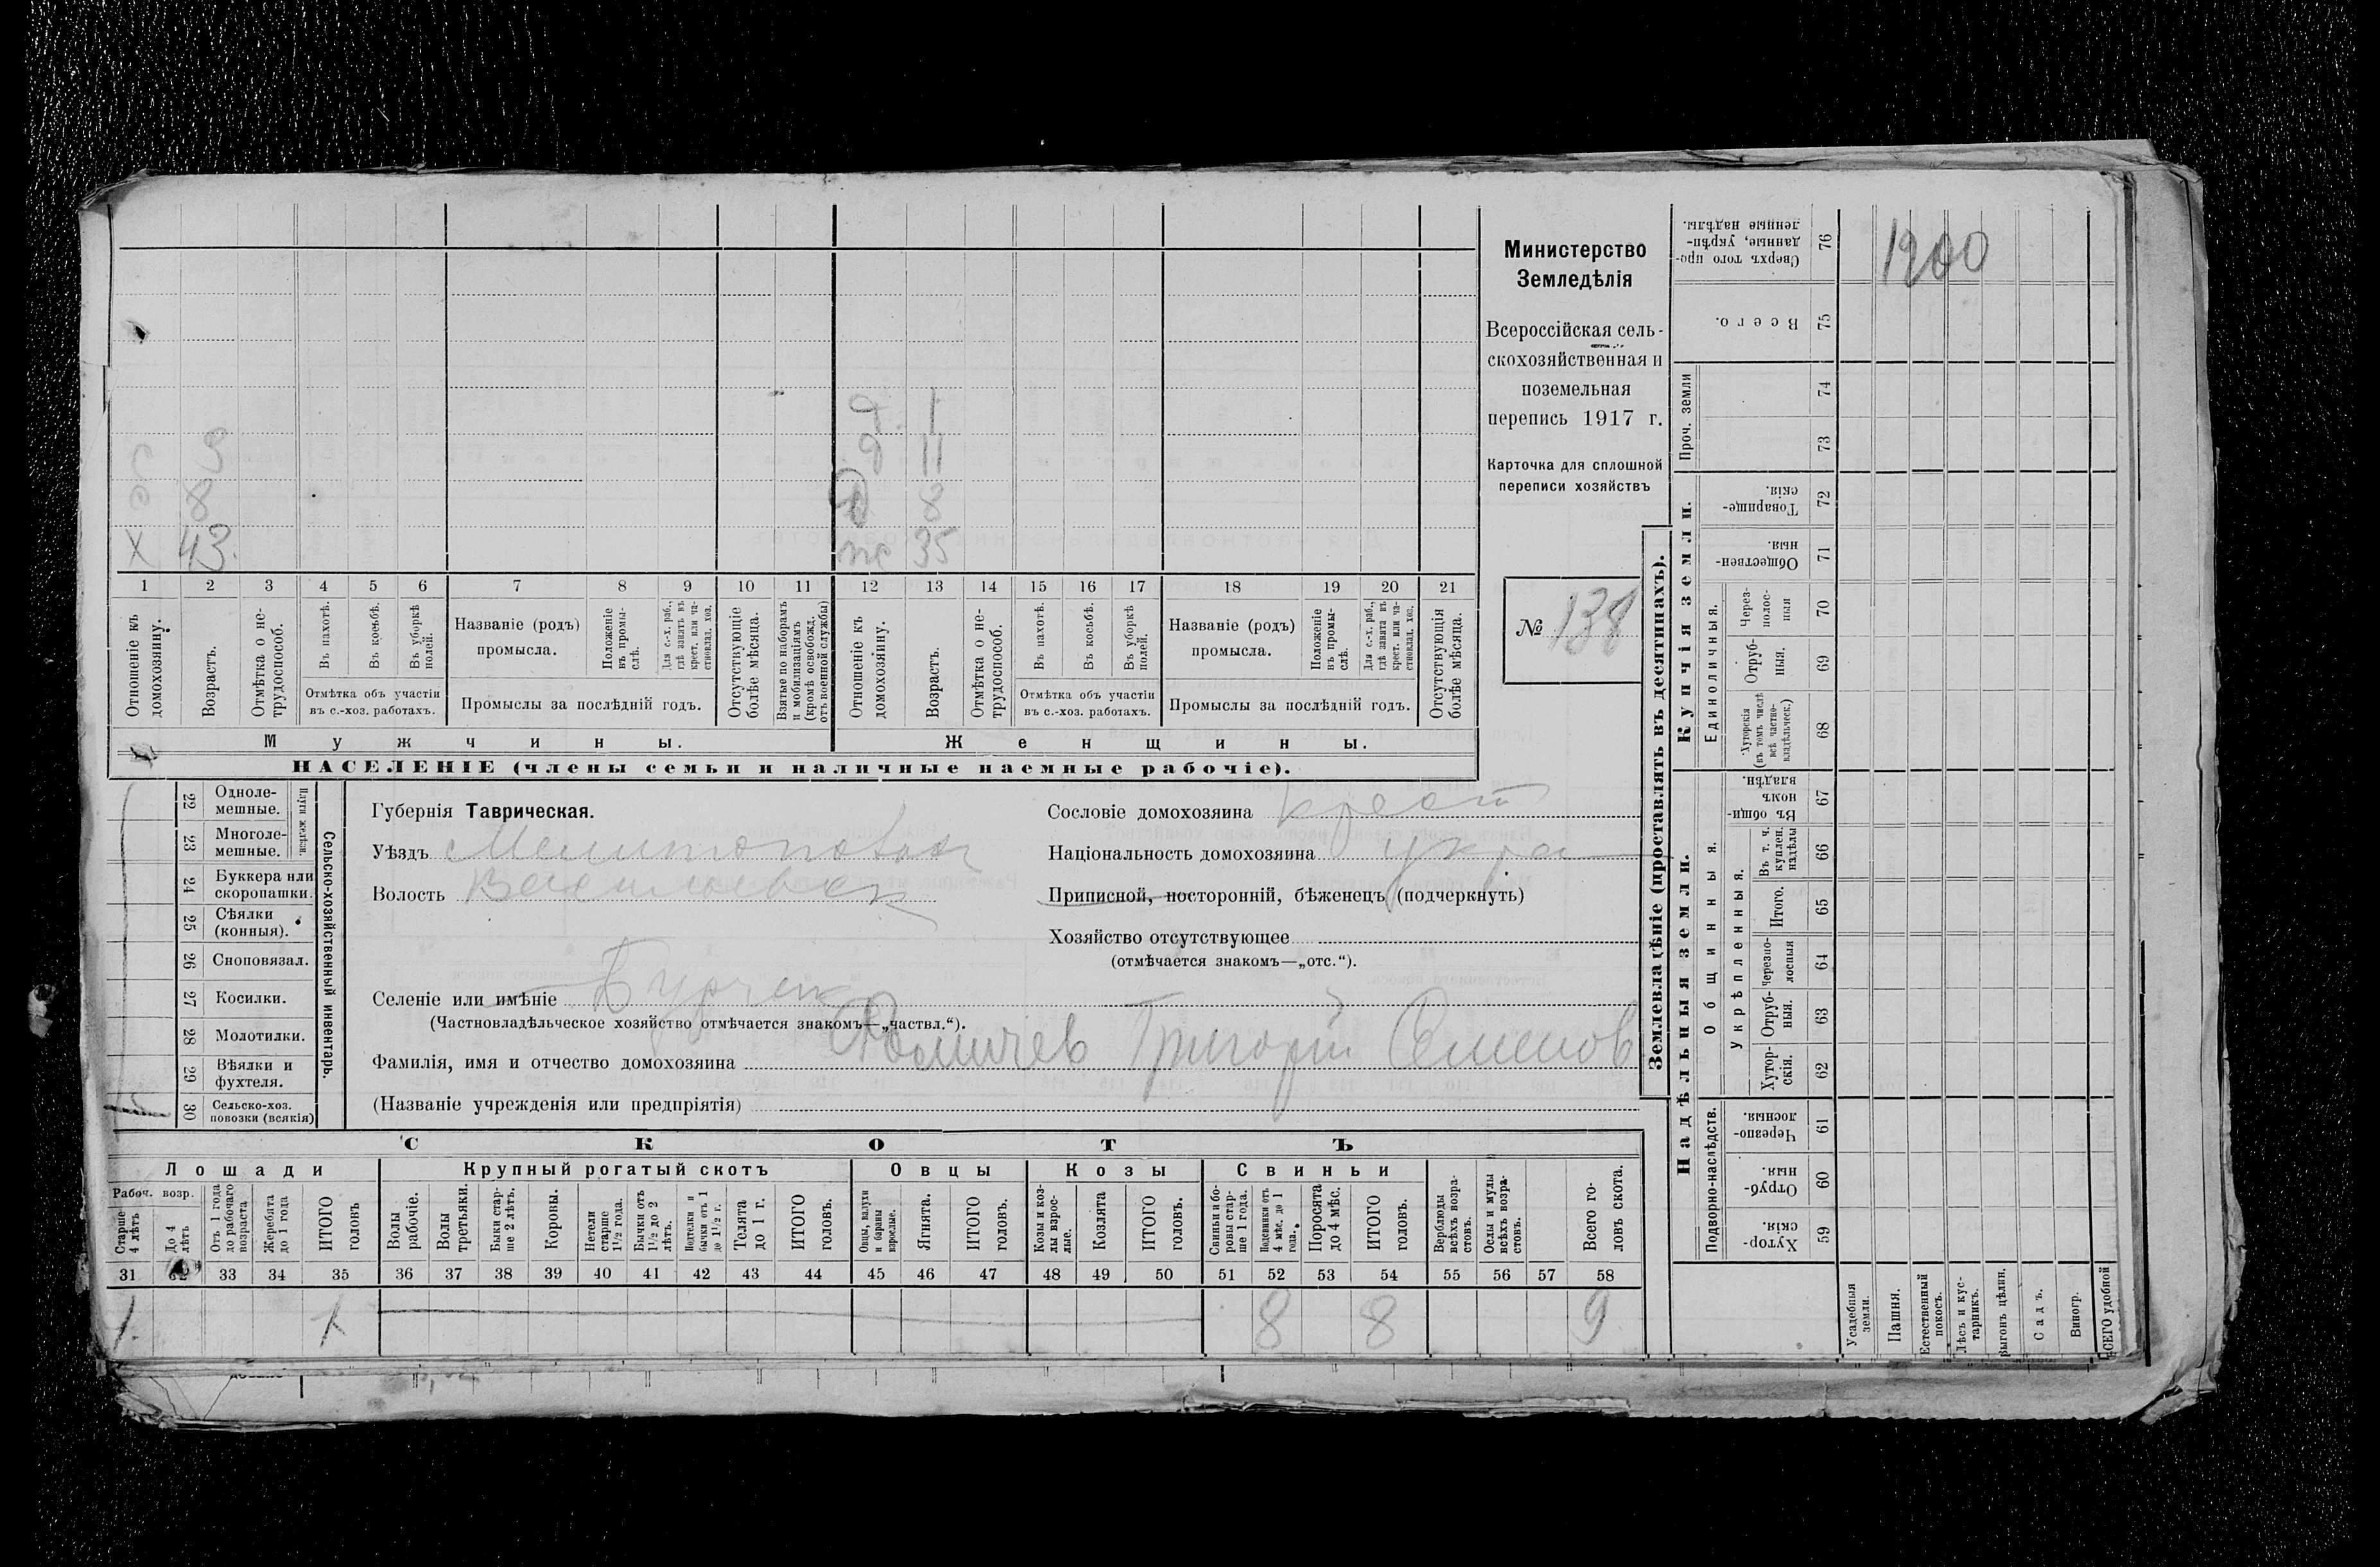 Министерство
Земледѣлія
Всероссійская сель-
скохозяйственная и
поземельная
перепись 1917 г.
Карточка для сплошной
переписи хозяйствъ
№ 138
д. 1
с 9 д 11
с 8 д 8
х 43. ж 35
1 2 3 4 5 6 7 8 9 10 11 12 13 14 15 16 17 18 19 20 21
Отношеніе къ домохозяину.
Возрастъ.
Отмѣтка о не-трудоспособ.
Въ пахотѣ.
Въ косьбѣ.
Въ уборкѣ полей.
Отмѣтка объ участіи
въ с.-хоз. работахъ.
Названіе (родъ)
промысла.
Положеніе въ промы-слѣ.
Для с.-х. раб., гдѣ занятъ въ крест. или ча-стновлад. хоз.
Промыслы за послѣдній годъ.
Отсутствующіе болѣе мѣсяца.
Взятые по наборамъ и мобилизаціямъ (кромѣ освобожд. отъ военной службы)
Отношеніе къ домохозяину.
Возрастъ.
Отмѣтка о не-трудоспособ.
Въ пахотѣ.
Въ косьбѣ.
Въ уборкѣ полей.
Отмѣтка объ участіи
въ с.-хоз. работахъ.
Названіе (родъ)
промысла.
Положеніе въ промы-слѣ.
Для с.-х. раб., гдѣ занята въ крест. или ча-стновлад. хоз.
Промыслы за послѣдній годъ.
Отсутствующія болѣе мѣсяца.
Мужчины. Женщины.
НАСЕЛЕНІЕ (члены семьи и наличные наемные рабочіе).
22 Одноле-мешные.
23 Многоле-мешные.
Плуги желѣзн.
24 Буккера или скоропашки.
25 Сѣялки (конныя).
26 Сноповязал.
27 Косилки.
28 Молотилки.
29 Вѣялки и фухтеля.
30 Сельско-хоз. повозки (всякія)
Сельско-хозяйственный инвентарь.
Губернія Таврическая.
Уѣздъ Мелитопольск
Волость Васильевск
Селеніе или имѣніе Бурчек
(Частновладѣльческое хозяйство отмѣчается знакомъ—„частвл.“).
Фамилія, имя и отчество домохозяина Григорій Семенов
(Названіе учрежденія или предпріятія)
Сословіе домохозяина крест
Національность домохозяина укра
Приписной, посторонній, бѣженецъ (подчеркнуть)
Хозяйство отсутствующее
(отмѣчается знакомъ—„отс.“).
СКОТЪ
Лошади Крупный рогатый скотъ Овцы Козы Свиньи
Рабоч. возр.
Старше 4 лѣтъ
До 4 лѣтъ
Отъ 1 года до рабочаго возраста
Жеребята до 1 года
ИТОГО головъ
Волы рабочіе.
Волы третьяки.
Быки стар-ше 2 лѣтъ.
Коровы.
Нетели старше 1½ года.
Бычки отъ 1½ до 2 лѣтъ.
Подтелки и бычки отъ 1 до 1½ г.
Телята до 1 г.
ИТОГО головъ.
Овцы, валухи и бараны взрослые.
Ягнята.
ИТОГО головъ.
Козы и коз-лы взрос-лые.
Козлята
ИТОГО головъ.
Свиньи и бо-ровы стар-ше 1 года.
Подсвинки отъ 4 мѣс. до 1 года.
Поросята до 4 мѣс.
ИТОГО головъ.
Верблюды всѣхъ возра-стовъ.
Ослы и мулы всѣхъ возра-стовъ.
Всего го-ловъ скота.
31 32 33 34 35 36 37 38 39 40 41 42 43 44 45 46 47 48 49 50 51 52 53 54 55 56 57 58
1. 1 8 8 9
Землевладѣніе (проставлять въ десятинахъ).
Купчія земли.
Надѣльныя земли.
Сверхъ того про-данные, укрѣп-ленные надѣлы. 76
1200
Всего. 75
Проч. земли 74 73
Товарище-скія. 72
Обществен-ныя. 71
Единоличныя.
Через-полос-ныя 70
Отруб-ныя. 69
Хуторскія (въ томъ числѣ всѣ частно-владѣльческ.) 68
Общинныя.
Въ общи-номъ владѣн. 67
Укрѣпленныя.
Въ т. ч. куплен. надѣлы 66
Итого. 65
Черезпо-лосныя 64
Отруб-ныя. 63
Хутор-скія. 62
Подворно-наслѣдств.
Черезпо-лосныя. 61
Отруб-ныя. 60
Хутор-скія. 59
Усадебныя земли.
Пашня.
Естественный покосъ.
Лѣсъ и кус-тарникъ.
Выгонъ цѣлин.
Садъ.
Виногр.
ВСЕГО удобной